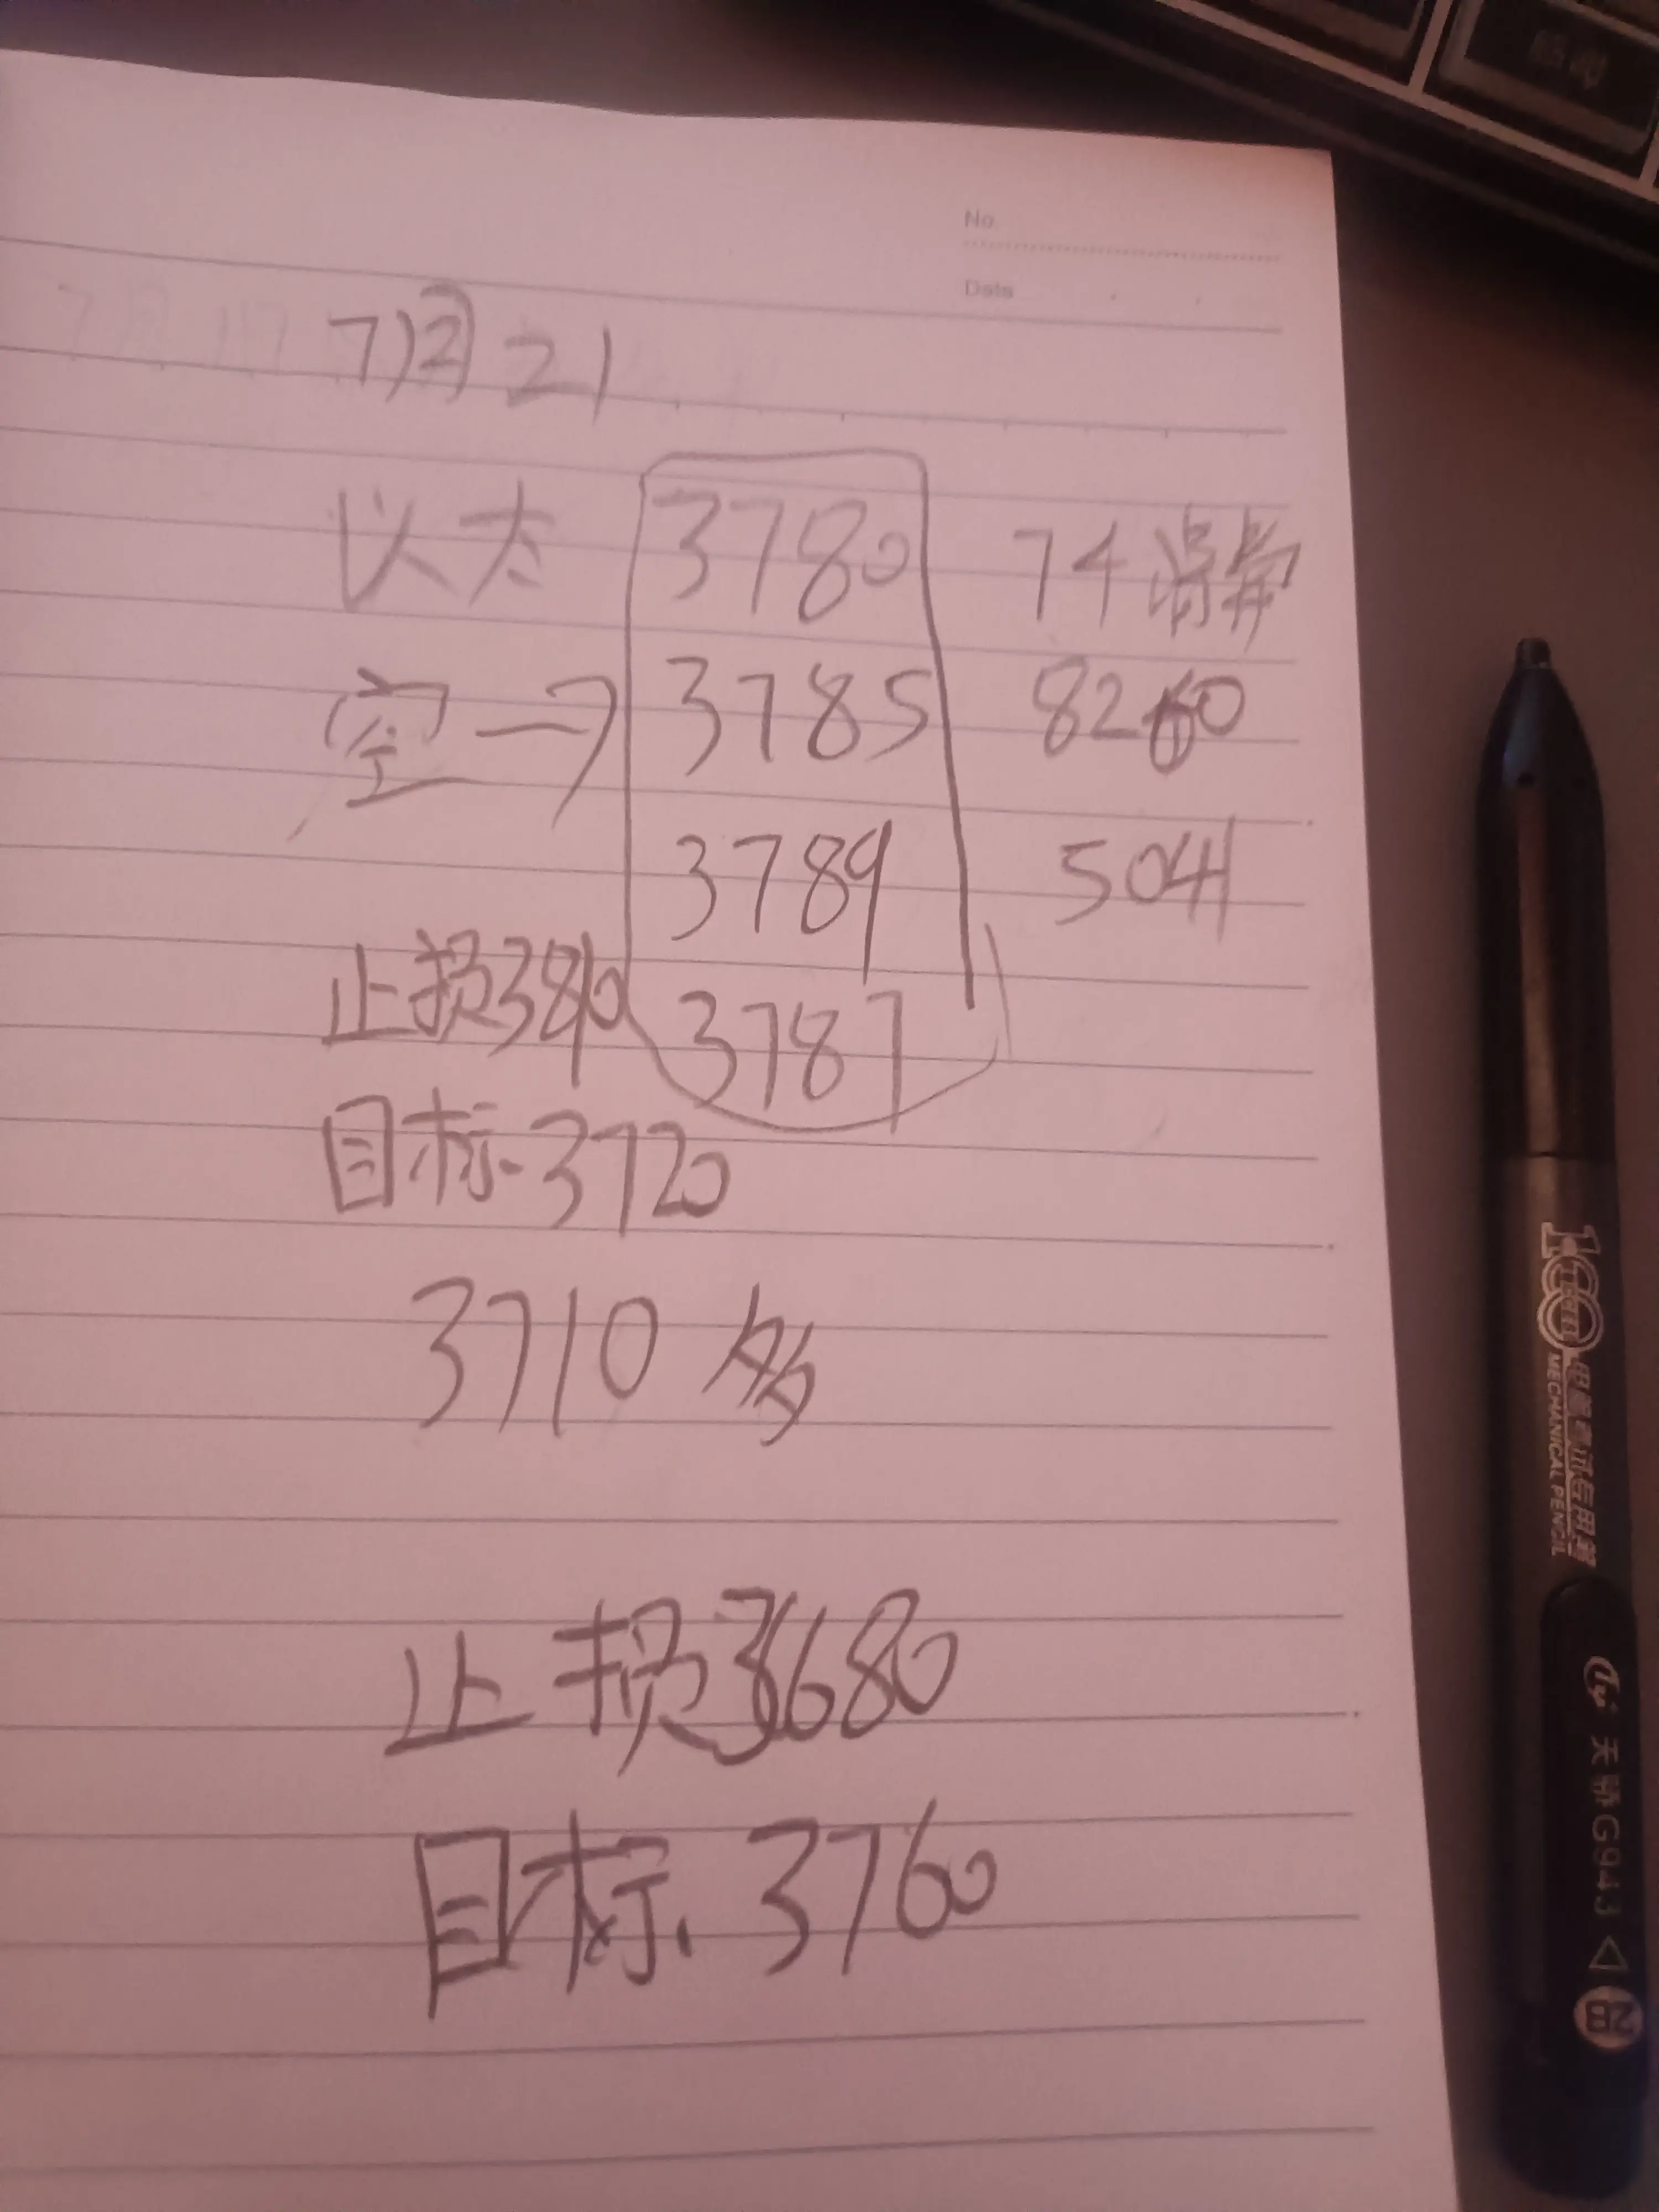 No.
Date
7月21
以太 3780 74
空→ 3785 8260
3789 5041
止损3810 3787
目标.3720
3710 多
止损3680
目标.3760
100
MECHANICAL PENCIL
天卓G943 2B